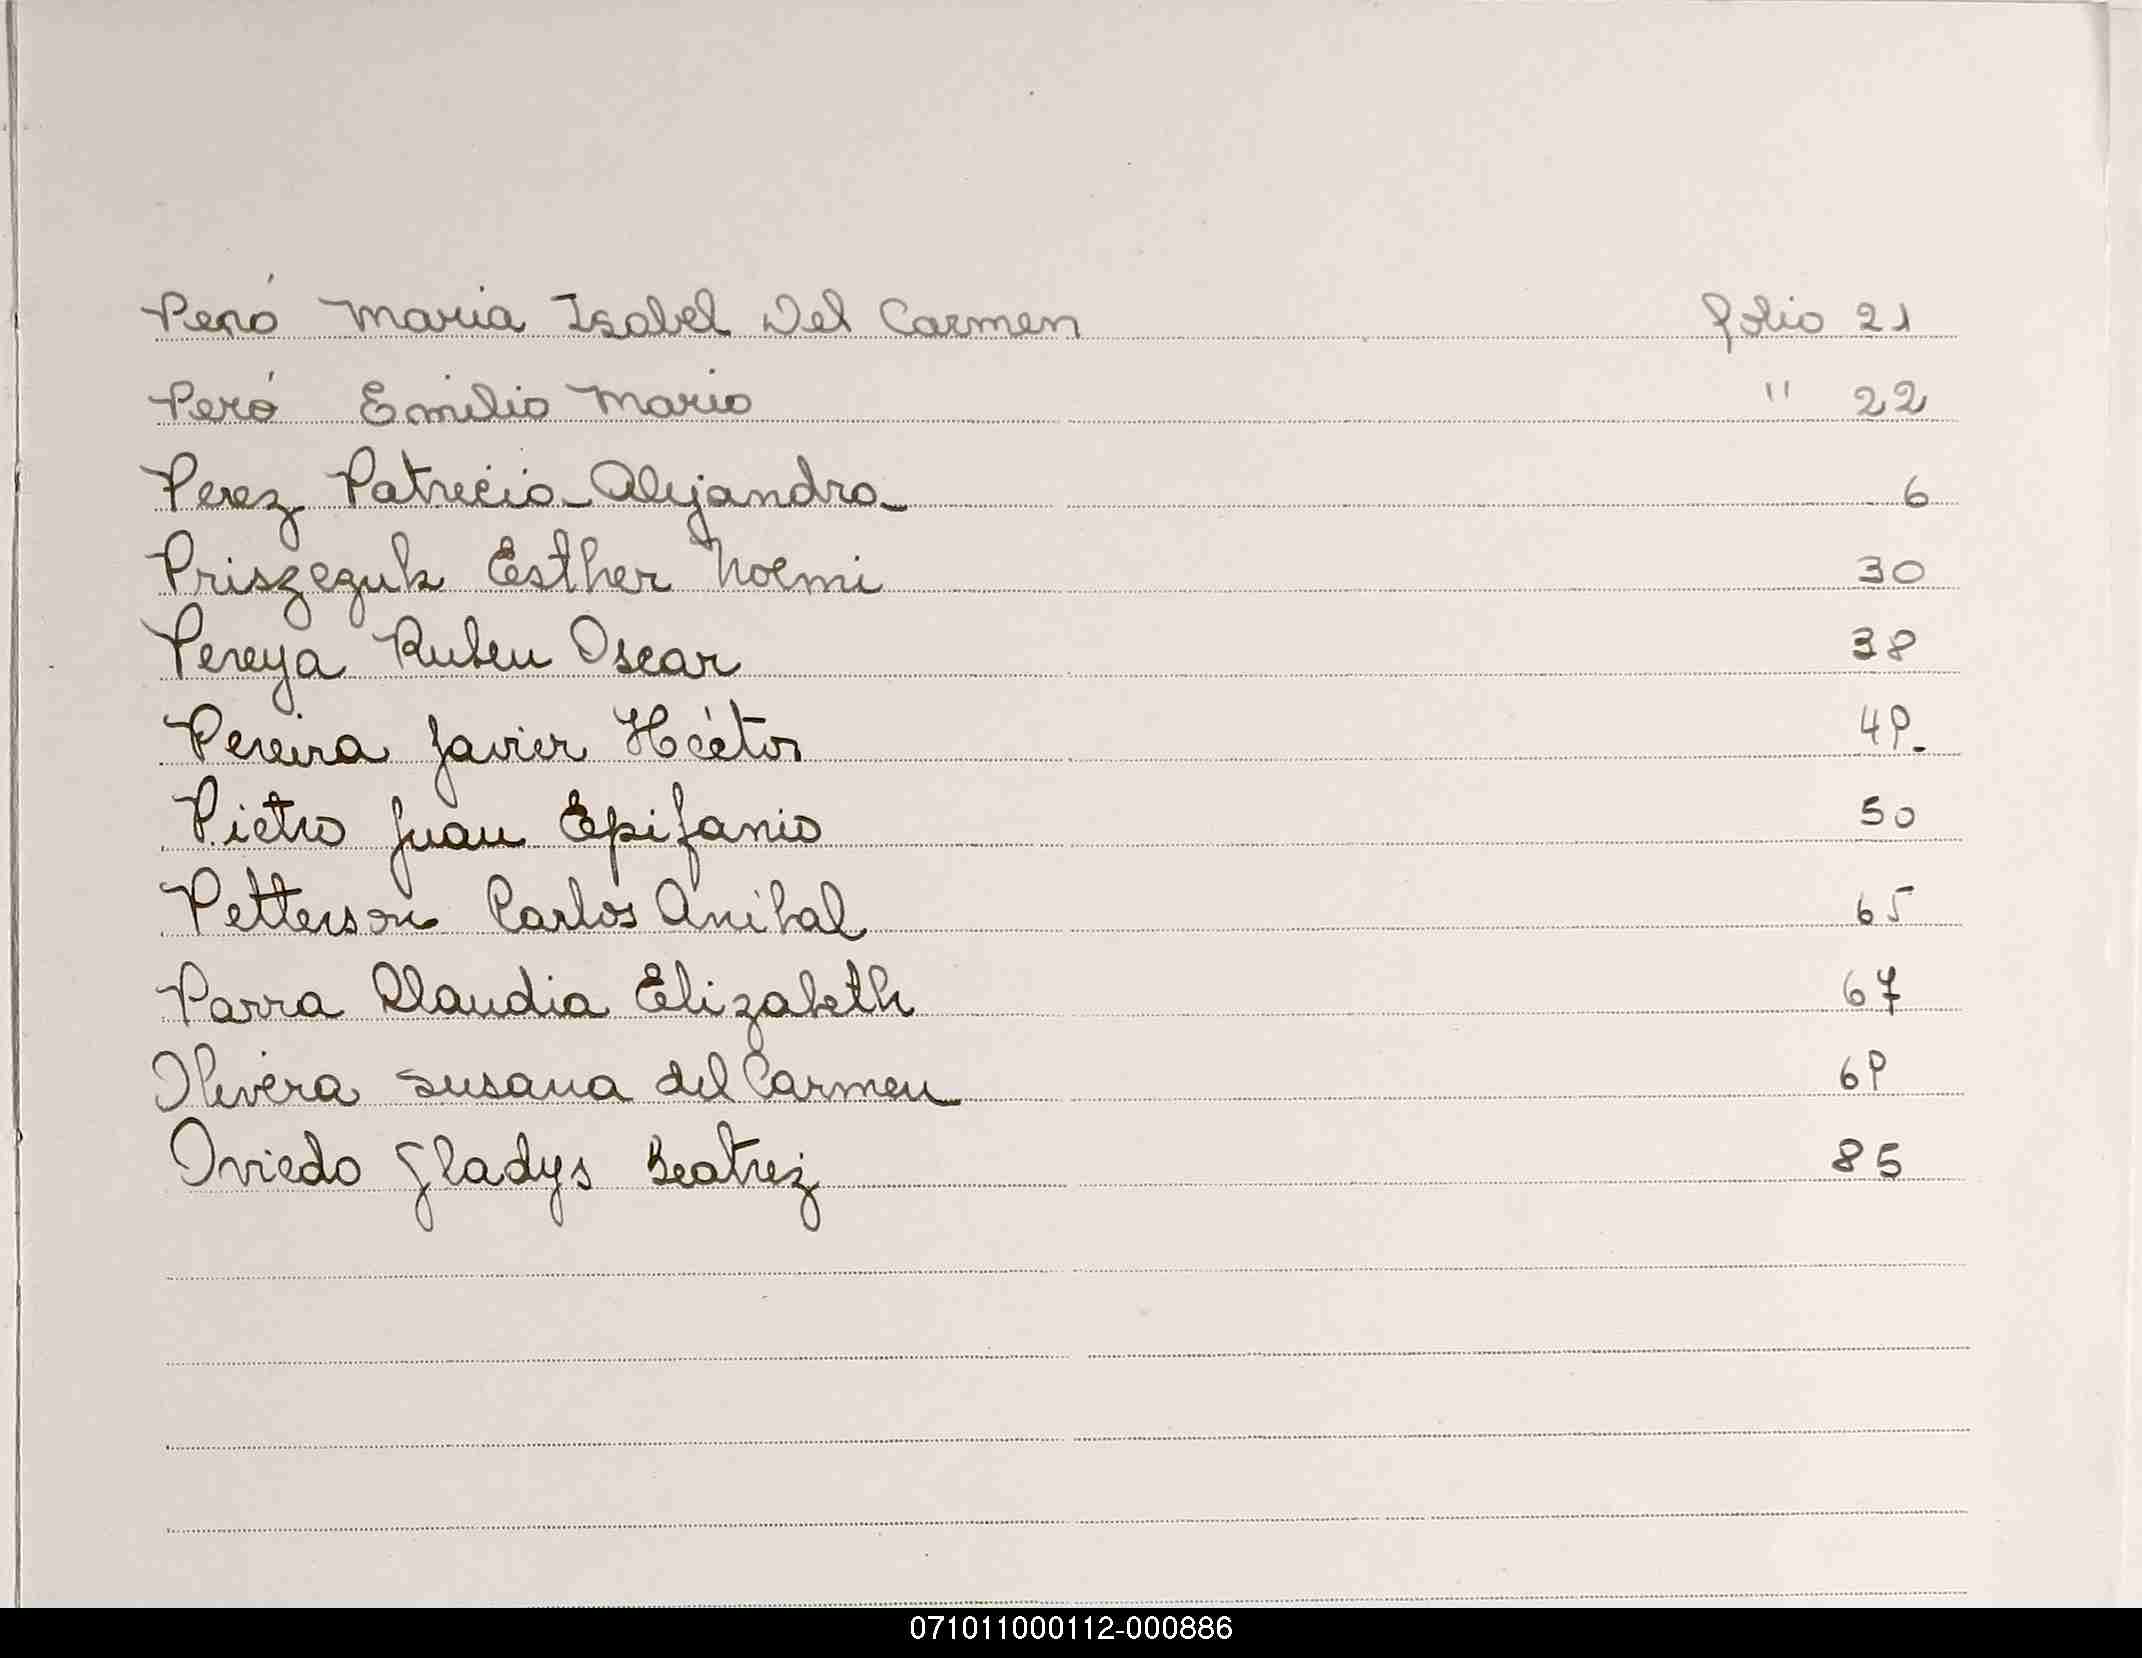 Peró Maria Isabel Del Carmen folio 21
Peró Emilio Mario " 22
Perez Patricia Alejandra 6
Priszeguk Esther Noemi 30
Pereya Ruben Oscar 38
Pereira Javier Héctor 49.
Pietro Juan Epifanio 50
Petterson Carlos Anibal 65
Parra Claudia Elizabeth 67
Olivera Susana del Carmen 69
Oviedo Gladys Beatriz 85
071011000112-000886